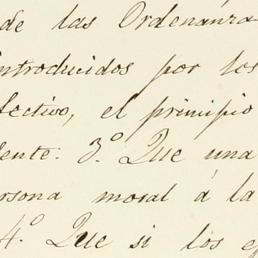 de las Ordenanza
introducidos por los
fectivo, el principio
dente: 3.º Que una
ersona moral á la
4.º Que si los ef